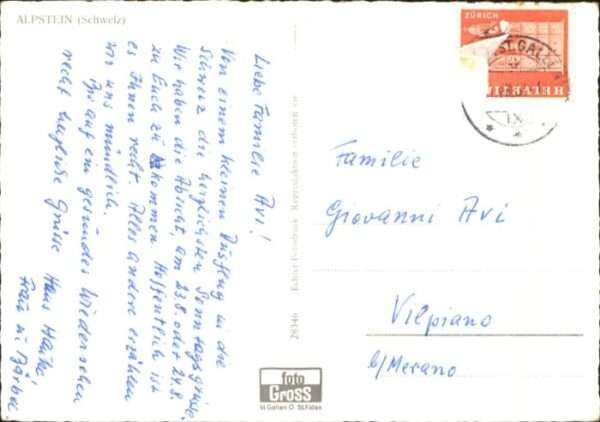 ALPSTEIN (Schweiz)
Liebe Familie Avi!
Von einem kleinen Ausflug in die
Schweiz die herzlichsten Sonntagsgrüsse.
Wir haben die Absicht am 23.8. oder 24.8.
zu Euch zu kommen. Hoffentlich ist
es Ihnen recht. Alles andere erzählen
wir uns mündlich.
Bis auf ein gesundes Wiedersehen
recht Grüsse Hans
Frau u. Bärbel
28346 Echter Fotodruck Reproduktion verboten
foto
Gross
St. Gallen O. St.Fiden
ZÜRICH
ST. GALL
HELVETIA
IX
Familie
Giovanni Avi
Vilpiano
b/Merano